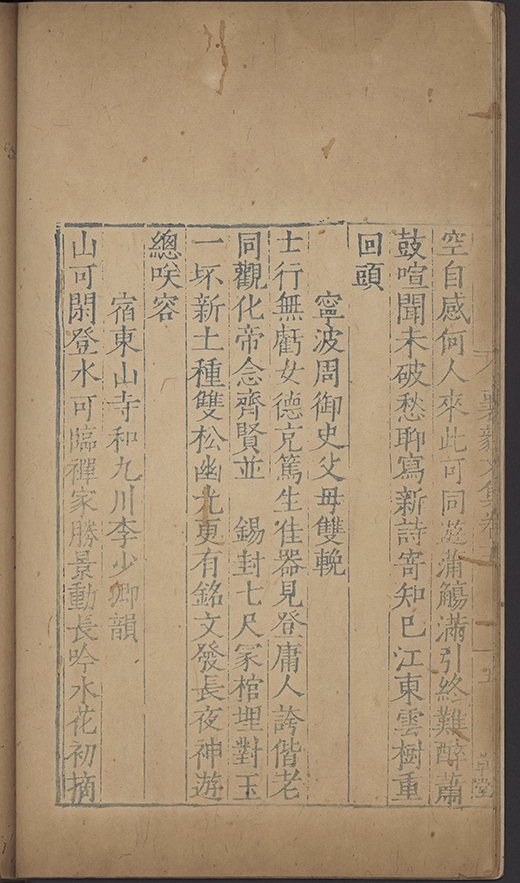 空自感何人來此可同遊蒲觴滿引終難醉蕭
鼓喧聞未破愁聊寫新詩寄知己江東雲樹重
回頭
寧波周御史父母雙輓
士行無虧女德克篤生佳器見登庸人誇偕老
同觀化帝念齊賢並 錫封七尺冢棺埋對玉
一坏新土種雙松幽光更有銘文發長夜神遊
總咲容
宿東山寺和九川李少卿韻
山可閑登水可臨禪家勝景動長吟水花初摘